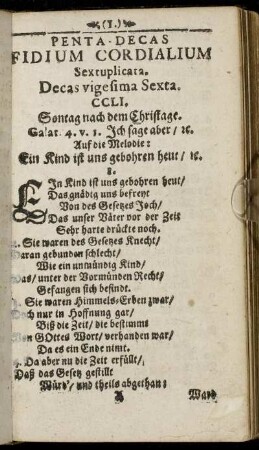 (1.)
PENTA-DECAS
FIDIUM CORDIALIUM
Sextuplicata.
Decas vigesima Sexta.
CCLI.
Sontag nach dem Christage.
Galat. 4. v. 1. Jch sage aber/ ꝛc.
Auf die Melodie:
Ein Kind ist uns gebohren heut/ ꝛc.
8.
EIn Kind ist uns gebohren heut/
Das gnädig uns befreyt
Von des Gesetzes Joch/
Das unser Väter vor der Zeit
Sehr harte drückte noch.
2. Sie waren des Gesetzes Knecht/
Daran gebunden schlecht/
Wie ein unmündig Kind/
Das/ unter der Vormünden Recht/
Gefangen sich befindt.
3. Sie waren Himmels-Erben zwar/
Doch nur in Hoffnung gar/
Biß die Zeit/ die bestimmt
Von GOttes Wort/ verhanden war/
Da es ein Ende nimt.
4. Da aber nu die Zeit erfüllt/
Daß das Gesetz gestillt
Würd'/ und theils abgethan:
X Ward